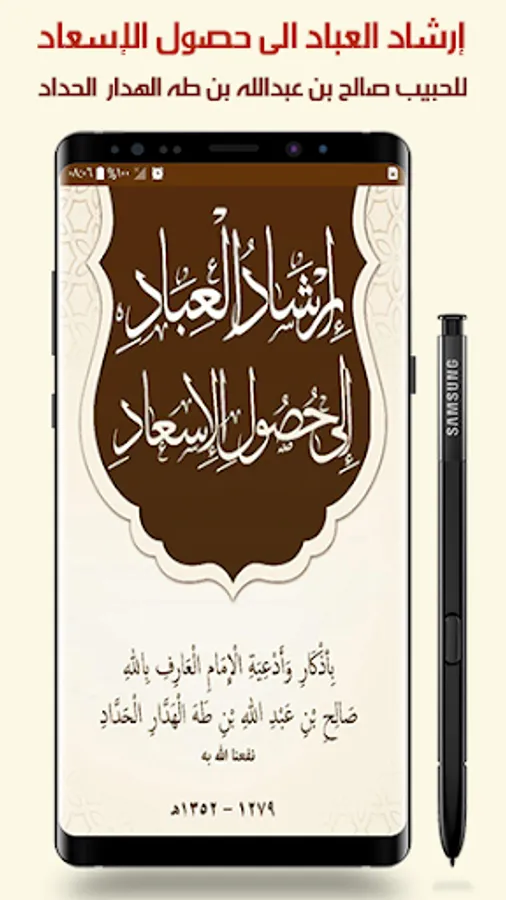 إرشاد العباد الى حصول الإسعاد
للحبيب صالح بن عبدالله بن طه الهدار الحداد
٠٨:٠٦ %١٠٠
إِرْشَادُ الْعِبَادِ
إِلَى حُصُولِ الْإِسْعَادِ
SAMSUNG
بِأَذْكَارِ وَأَدْعِيَةِ الْإِمَامِ الْعَارِفِ بِاللهِ
صَالِحِ بْنِ عَبْدِ اللهِ بْنِ طَهَ الْهَدَّارِ الْحَدَّادِ
نفعنا الله به
١٢٧٩ - ١٣٥٢هـ